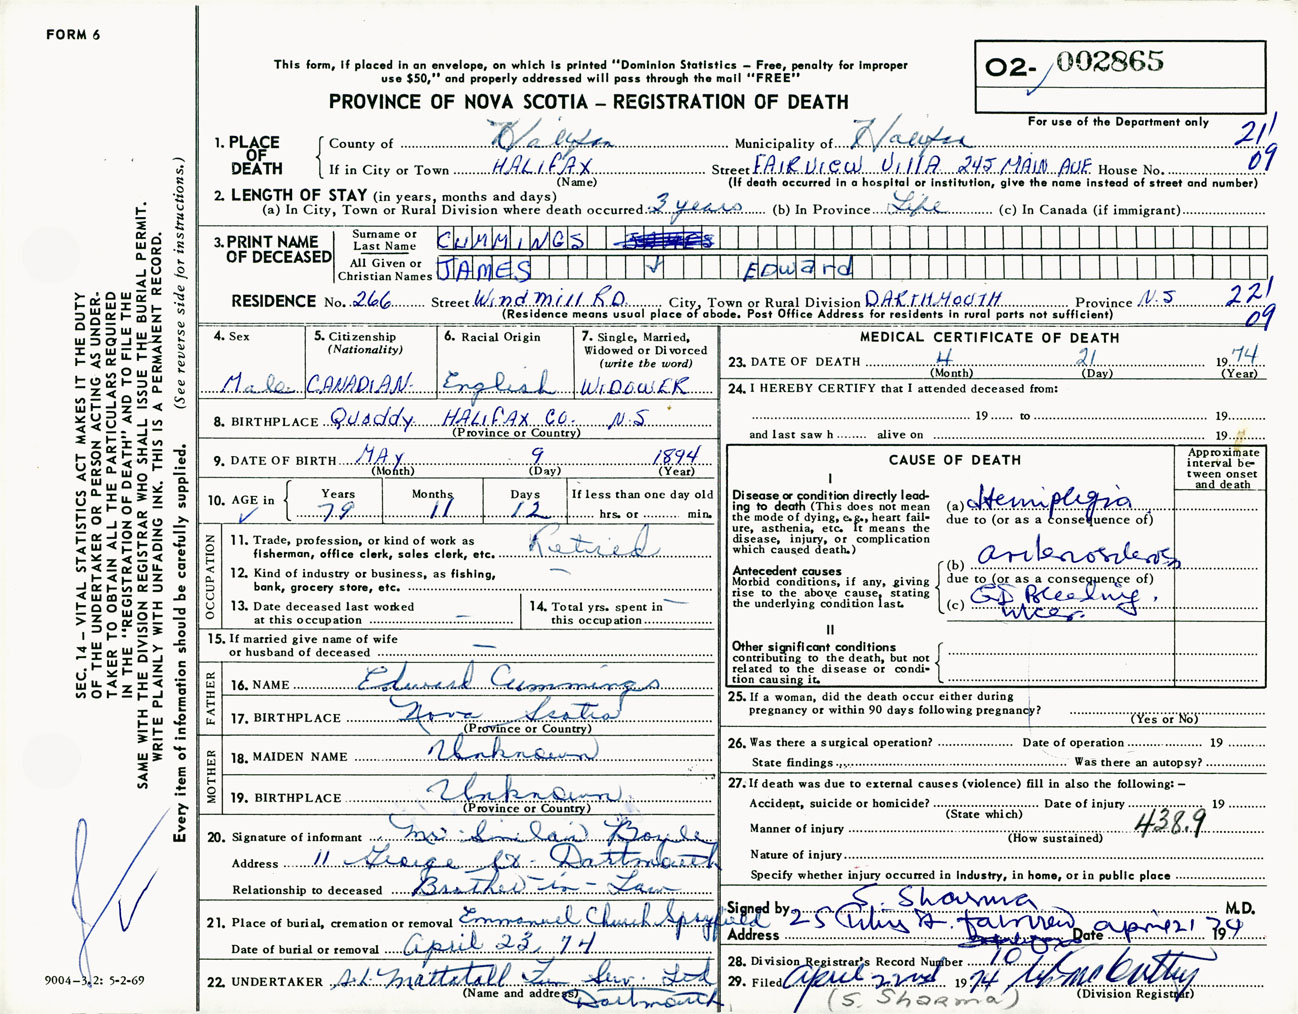 FORM 6
This form, if placed in an envelope, on which is printed "Dominion Statistics – Free, penalty for improper
use $50," and properly addressed will pass through the mail "FREE"
PROVINCE OF NOVA SCOTIA – REGISTRATION OF DEATH
O2- 002865
For use of the Department only
21
09
1. PLACE OF DEATH
County of Halifax Municipality of Halifax
If in City or Town HALIFAX Street FAIRVIEW VILLA 245 MAIN AVE House No.
(Name) (If death occurred in a hospital or institution, give the name instead of street and number)
2. LENGTH OF STAY (in years, months and days)
(a) In City, Town or Rural Division where death occurred 3 years (b) In Province Life (c) In Canada (if immigrant)
3. PRINT NAME OF DECEASED
Surname or Last Name CUMMINGS
All Given or Christian Names JAMES Edward
RESIDENCE No. 266 Street Windmill RD City, Town or Rural Division DARTHMOUTH Province N.S
(Residence means usual place of abode. Post Office Address for residents in rural parts not sufficient)
221
09
4. Sex Male
5. Citizenship (Nationality) CANADIAN
6. Racial Origin English
7. Single, Married, Widowed or Divorced (write the word) WIDOWER
8. BIRTHPLACE Quoddy HALIFAX CO. N.S
(Province or Country)
9. DATE OF BIRTH MAY 9 1894
(Month) (Day) (Year)
10. AGE in Years 79 Months 11 Days 12 If less than one day old hrs. or min.
OCCUPATION
11. Trade, profession, or kind of work as fisherman, office clerk, sales clerk, etc. Retired
12. Kind of industry or business, as fishing, bank, grocery store, etc. —
13. Date deceased last worked at this occupation —
14. Total yrs. spent in this occupation —
15. If married give name of wife or husband of deceased —
FATHER
16. NAME Edward Cummings
17. BIRTHPLACE Nova Scotia
(Province or Country)
MOTHER
18. MAIDEN NAME Unknown
19. BIRTHPLACE Unknown
(Province or Country)
20. Signature of informant Mr. Sinclair
Address 11 George St - Dartmouth
Relationship to deceased Brother-in-Law
21. Place of burial, cremation or removal Emmanuel Church Spryfield
Date of burial or removal April 23, 74
22. UNDERTAKER A.L. Mattatall Fun Serv. Ltd
(Name and address) Dartmouth
MEDICAL CERTIFICATE OF DEATH
23. DATE OF DEATH 4 21 1974
(Month) (Day) (Year)
24. I HEREBY CERTIFY that I attended deceased from:
19 to 19
and last saw h alive on 19
CAUSE OF DEATH
Approximate interval between onset and death
I
Disease or condition directly leading to death (This does not mean the mode of dying, e.g., heart failure, asthenia, etc. It means the disease, injury, or complication which caused death.)
(a) Hemiplegia
due to (or as a consequence of)
Antecedent causes
Morbid conditions, if any, giving rise to the above cause, stating the underlying condition last.
(b) arteriosclerosis
due to (or as a consequence of)
(c) Bleeding.
ulcer.
II
Other significant conditions
contributing to the death, but not related to the disease or condition causing it.
25. If a woman, did the death occur either during pregnancy or within 90 days following pregnancy?
(Yes or No)
26. Was there a surgical operation? Date of operation 19
State findings Was there an autopsy?
27. If death was due to external causes (violence) fill in also the following: –
Accident, suicide or homicide? Date of injury 19
(State which)
Manner of injury 438.9
(How sustained)
Nature of injury
Specify whether injury occurred in industry, in home, or in public place
Signed by S. Sharma M.D.
Address 25 Titus St. Fairview Date April 21 1974
28. Division Registrar's Record Number 10
29. Filed April 22nd 1974
(Division Registrar)
(S. Sharma)
SEC. 14 – VITAL STATISTICS ACT MAKES IT THE DUTY
OF THE UNDERTAKER OR PERSON ACTING AS UNDER-
TAKER TO OBTAIN ALL THE PARTICULARS REQUIRED
IN THE "REGISTRATION OF DEATH" AND TO FILE THE
SAME WITH THE DIVISION REGISTRAR WHO SHALL ISSUE THE BURIAL PERMIT.
WRITE PLAINLY WITH UNFADING INK. THIS IS A PERMANENT RECORD.
Every item of information should be carefully supplied. (See reverse side for instructions.)
9004–3.2: 5-2-69